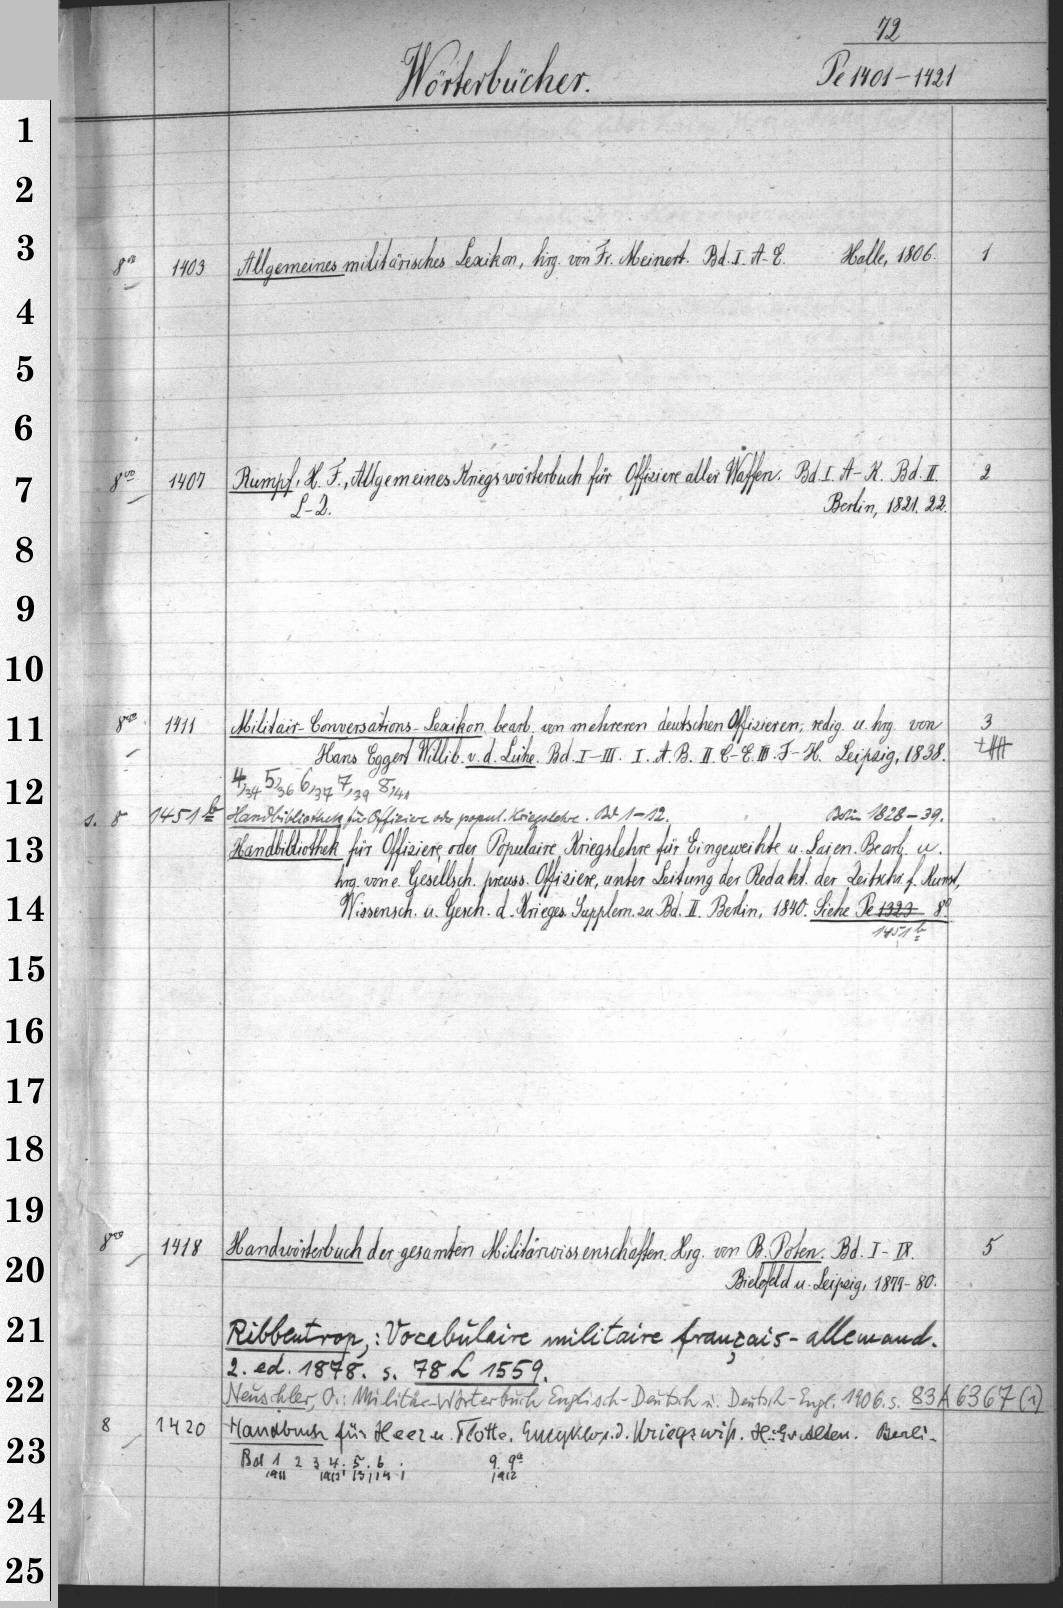 72
Wörterbücher.
Pe 1401-1421
1
2
3
8º 1403 Allgemeines militärisches Lexikon, hrg. von Fr. Meinert. Bd. I. A-E. Halle, 1806. 1
4
5
6
7
8vo 1407 Rumpf, H. F., Allgemeines Kriegswörterbuch für Offiziere aller Waffen. Bd. I. A-K. Bd. II. 2
L-Z. Berlin, 1821. 22.
8
9
10
11
8vo 1411 Militair-Conversations-Lexikon bearb. von mehreren deutschen Offizieren, redig. u. hrg. von 3
Hans Eggert Willib. v. d. Lühe. Bd. I-III. I. A. B. II C-E. III. F-H. Leipzig, 1838.
4/34 5/36 6/37 7/39 8/40
12
s. 8 1451 b Handbibliothek für Offiziere oder popul. Kriegslehre. Bd 1-12. Berlin 1828-39.
13
Handbibliothek für Offiziere oder Populaire Kriegslehre für Eingeweihte u. Laien. Bearb. u.
hrg. von e. Gesellsch. preuss. Offiziere, unter Leitung der Redakt. der Zeitschr. f. Kunst,
14
Wissensch. u. Gesch. d. Krieges. Supplem. zu Bd. II. Berlin, 1840. Siehe Pe 1323 8º
1451 b
15
16
17
18
19
8vo 1418 Handwörterbuch der gesamten Militärwissenschaften. Hrg. von B. Poten. Bd. I-IX. 5
20
Bielefeld u. Leipzig, 1877-80.
21
Ribbentrop,: Vocabulaire militaire français-allemand.
2. ed. 1878. s. 78 L 1559.
22
Neuschler, O.: Militär-Wörterbuch Englisch-Deutsch u. Deutsch-Engl. 1906. s. 83 A 6367 (1)
8 1420 Handbuch für Heer u. Flotte. Encyklop. d. Kriegswiss. H: G. v. Alten. Berli-
23
Bd 1 2 3 4. 5. 6. 9. 9a
1911 1912 13 14 1912
24
25